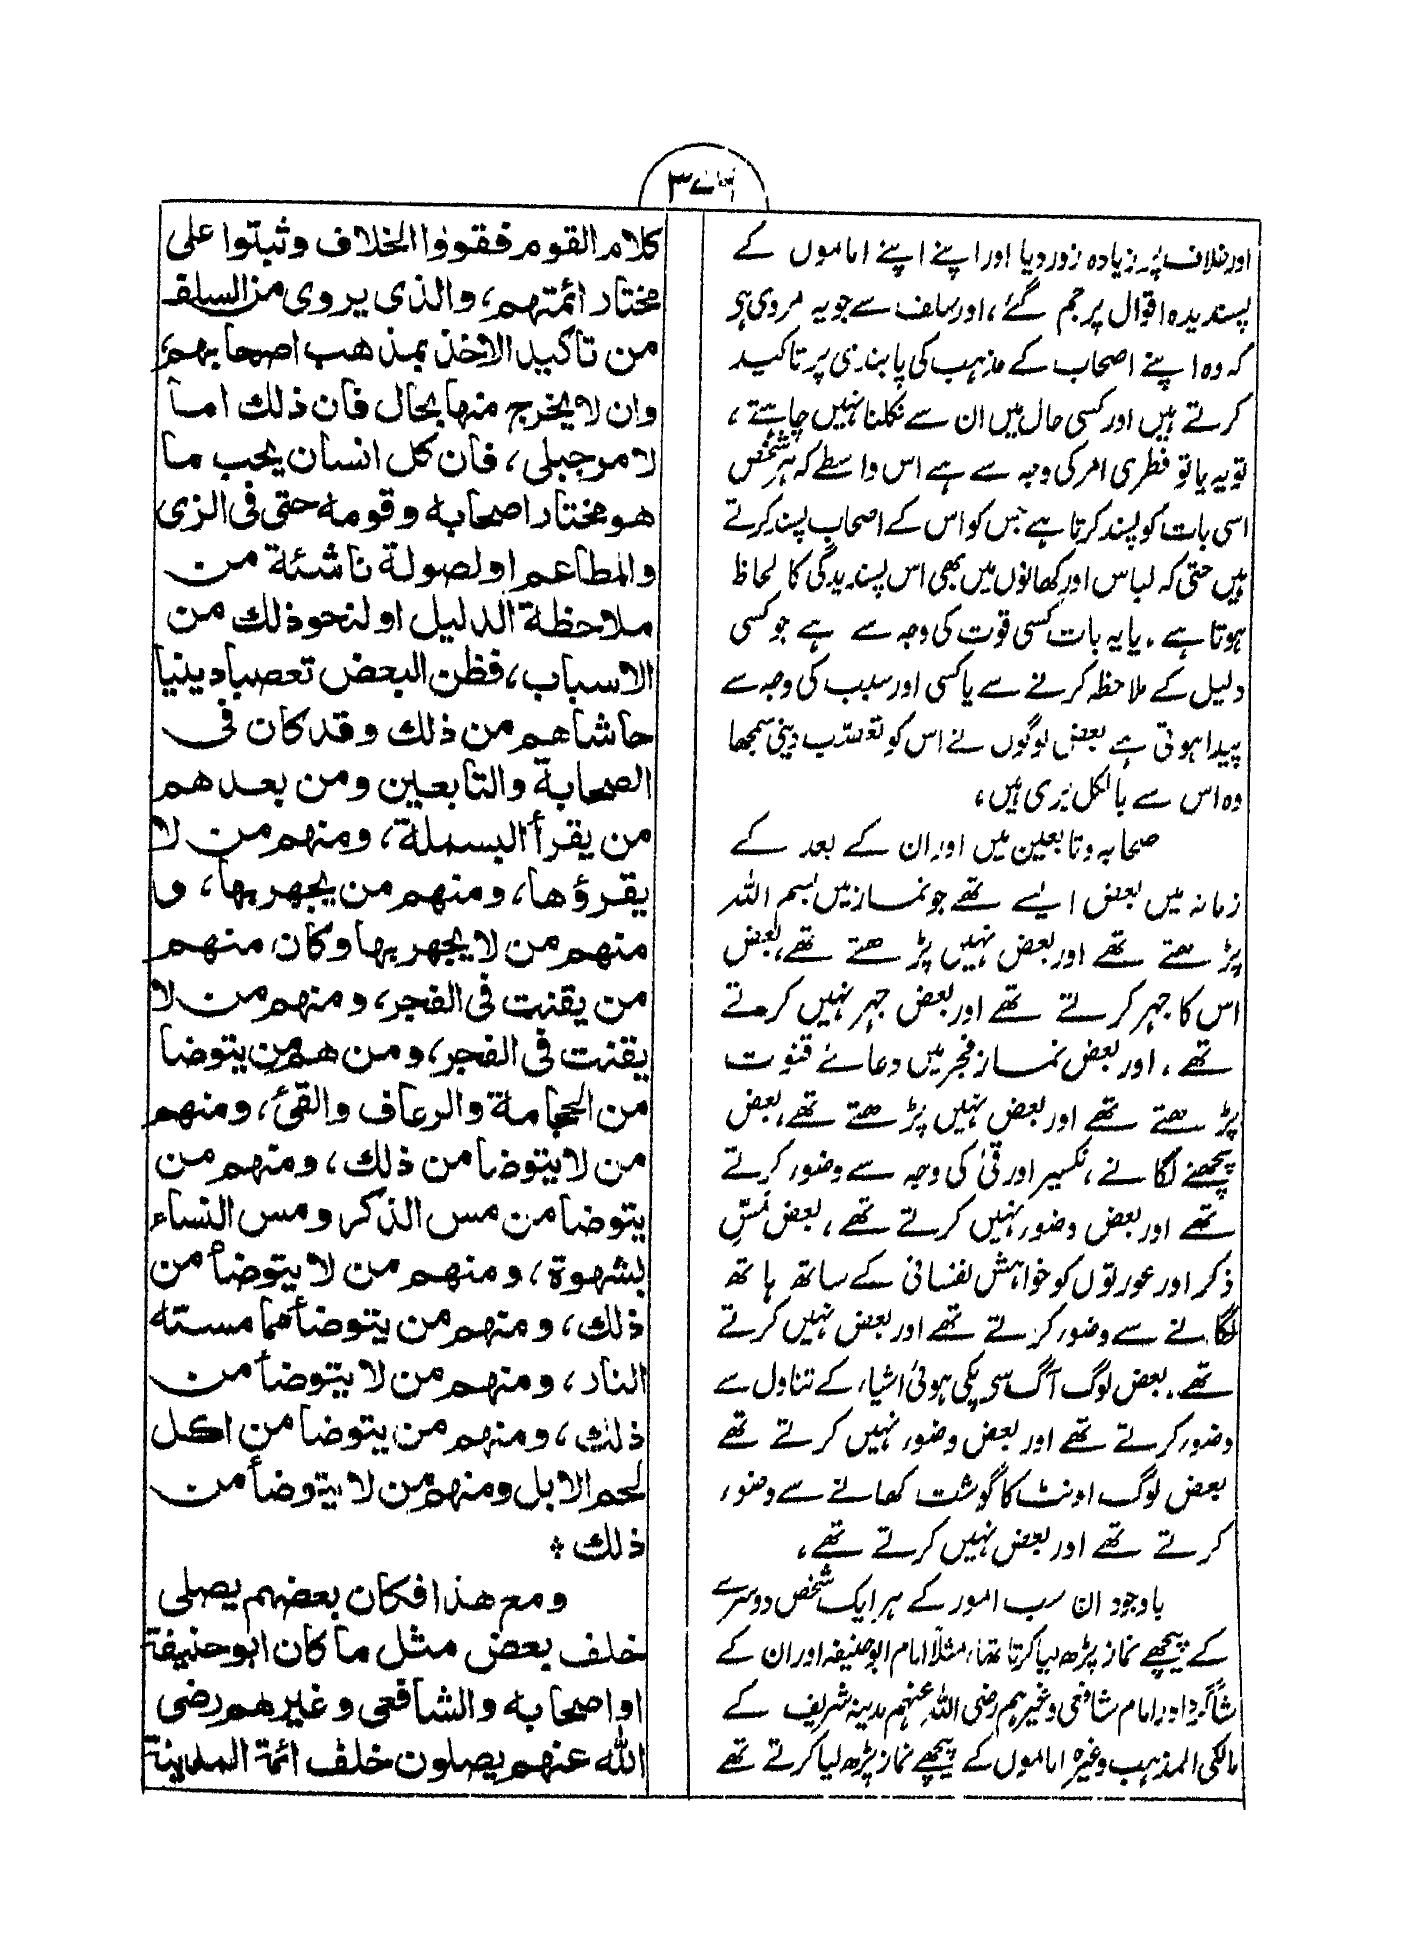 ۳۷۶
اور خلاف پر زیادہ زور دیا اور اپنے اپنے اماموں کے
پسندیدہ اقوال پر جم گئے، اور سلف سے جو یہ مروی ہی
کہ وہ اپنے اصحاب کے مذہب کی پابندی پر تاکید
کرتے ہیں اور کسی حال میں ان سے نکلنا نہیں چاہتے،
تو یہ یا تو فطری امر کی وجہ سے ہے اس واسطے کہ ہر شخص
اسی بات کو پسند کرتا ہے جس کو اس کے اصحاب پسند کرتے
ہیں حتی کہ لباس اور کھانوں میں بھی اس پسندیدگی کا لحاظ
ہوتا ہے۔ یا یہ بات کسی قوت کی وجہ سے ہے جو کسی
دلیل کے ملاحظہ کرنے سے یا کسی اور سبب کی وجہ سے
پیدا ہوتی ہے بعض لوگوں نے اس کو تعصب دینی سمجھا
وہ اس سے بالکل بری ہیں،
صحابہ و تابعین میں اور ان کے بعد کے
زمانہ میں بعض ایسے تھے جو نماز میں بسم اللہ
پڑھتے تھے اور بعض نہیں پڑھتے تھے، بعض
اس کا جہر کرتے تھے اور بعض جہر نہیں کرتے
تھے، اور بعض نماز فجر میں دعائے قنوت
پڑھتے تھے اور بعض نہیں پڑھتے تھے، بعض
پچھنے لگانے، نکسیر اور قئ کی وجہ سے وضور کرتے
تھے اور بعض وضور نہیں کرتے تھے، بعض مسّ
ذکر اور عورتوں کو خواہش نفسانی کے ساتھ ہاتھ
لگانے سے وضور کرتے تھے اور بعض نہیں کرتے
تھے۔ بعض لوگ آگ سی پکی ہوئی اشیاء کے تناول سے
وضور کرتے تھے اور بعض وضور نہیں کرتے تھے
بعض لوگ اونٹ کا گوشت کھانے سے وضور
کرتے تھے اور بعض نہیں کرتے تھے،
باوجود ان سب امور کے ہر ایک شخص دوسرے
کے پیچھے نماز پڑھ لیا کرتا تھا، مثلاً امام ابوحنیفہ اور ان کے
شاگرد اور امام شافعی وغیرہم رضی اللہ عنہم مدینہ شریف کے
مالکی المذہب وغیرہ اماموں کے پیچھے نماز پڑھ لیا کرتے تھے
كلام القوم فقووا الخلاف وثبتوا على
مختار ائمتهم، والذى يروى من السلف
من تاكيد الاخذ بمذهب اصحابهم،
وان لا يخرج منها بحال فان ذلك اما
لامر جبلى، فان كل انسان يحب ما
هو مختار اصحابه وقومه حتى فى الزى
والمطاعم او لصولة ناشئة من
ملاحظة الدليل او لنحو ذلك من
الاسباب، فظن البعض تعصبا دينيا
حاشاهم من ذلك وقد كان فى
الصحابة والتابعين ومن بعدهم
من يقرأ البسملة، ومنهم من لا
يقرؤها، ومنهم من يجهر بها، و
منهم من لا يجهر بها وكان منهم
من يقنت فى الفجر، ومنهم من لا
يقنت فى الفجر، ومن هم من يتوضا
من الحجامة والرعاف والقئ، ومنهم
من لا يتوضا من ذلك، ومنهم من
يتوضا من مس الذكر ومس النساء
بشهوة، ومنهم من لا يتوضأ من
ذلك، ومنهم من يتوضأ مما مسته
النار، ومنهم من لا يتوضأ من
ذلك، ومنهم من يتوضا من اكل
لحم الابل ومنهم من لا يتوضأ من
ذلك ❖
ومع هذا فكان بعضهم يصلى
خلف بعض مثل ما كان ابوحنيفة
او اصحابه والشافعى وغيرهم رضى
الله عنهم يصلون خلف ائمة المدينة